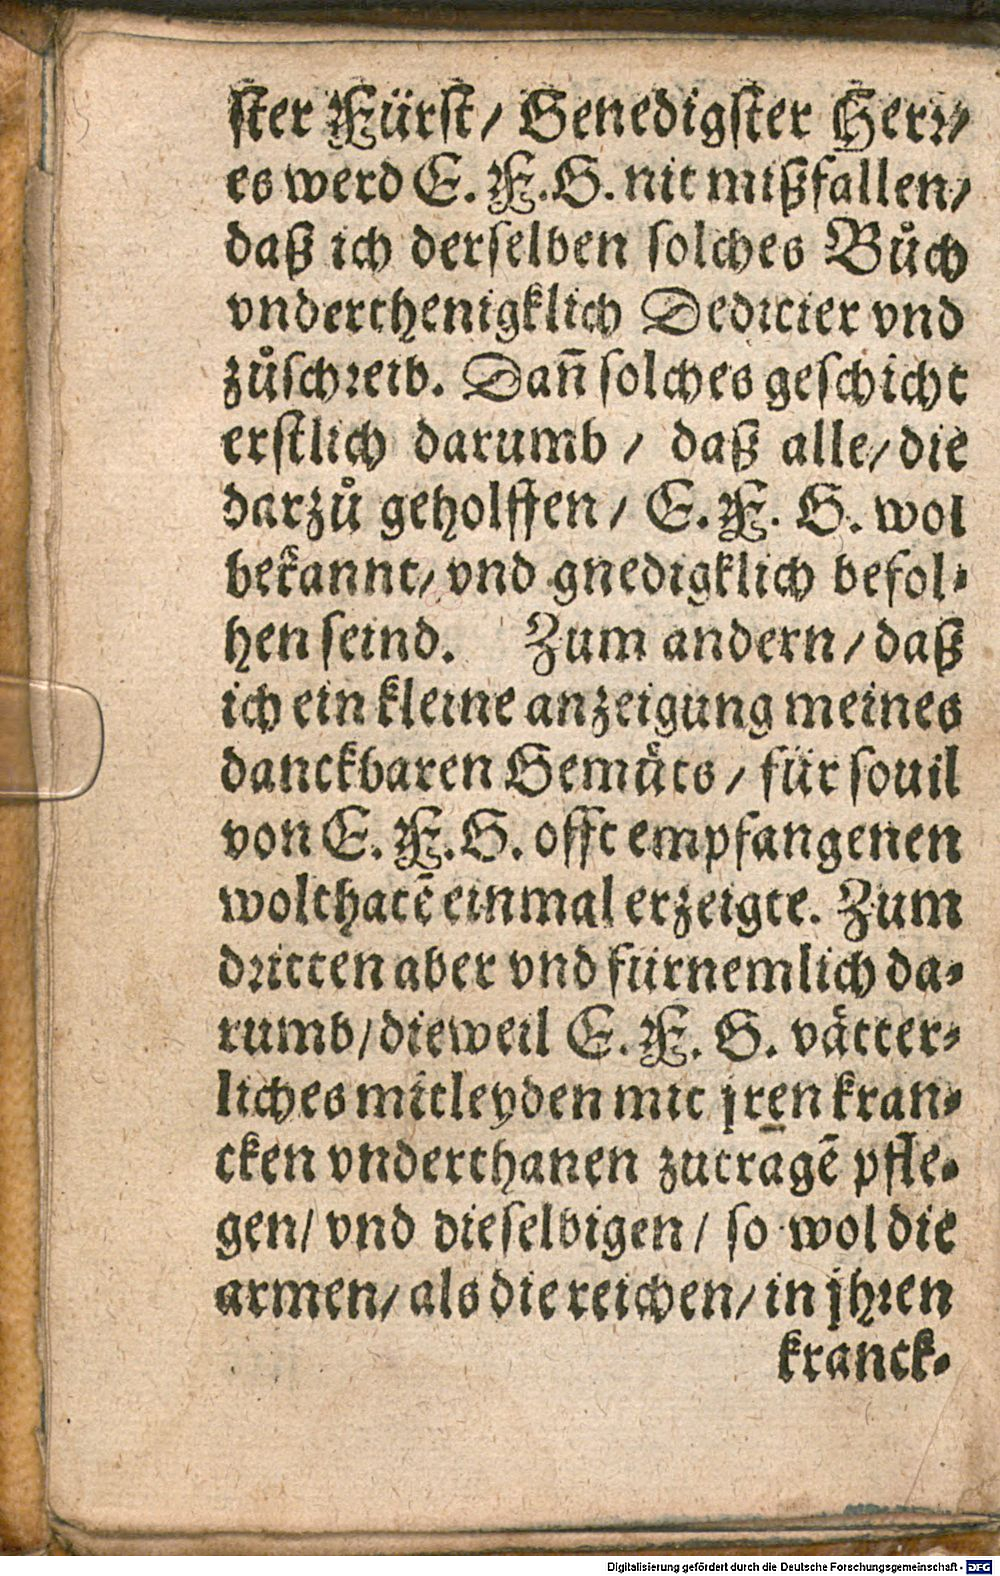 ster Fürst/ Genedigster Herr/
es werd E. F. G. nit mißfallen/
daß ich derselben solches Bůch
vnderthenigklich Dedicier vnd
zůschreib. Dañ solches geschicht
erstlich darumb / daß alle/ die
darzů geholffen/ E. F. G. wol
bekannt/ vnd gnedigklich befol-
hen seind. Zum andern/ daß
ich ein kleine anzeigung meines
danckbaren Gemüts/ für souil
von E. F. G. offt empfangenen
wolthatẽ einmal erzeigte. Zum
dritten aber vnd fürnemlich da-
rumb/ dieweil E. F. G. vätter-
liches mitleyden mit jren kran-
cken vnderthanen zutragẽ pfle-
gen/ vnd dieselbigen/ so wol die
armen/ als die reichen/ in jhren
kranck-
Digitalisierung gefördert durch die Deutsche Forschungsgemeinschaft - DFG